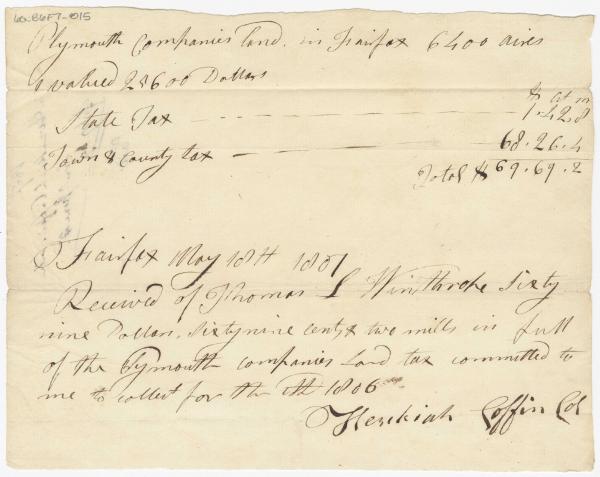 Plymouth Companies Land. in Fairfax 6400 acres
valued 25600 Dollars
$ Ct m
State Tax 1.42.8
Town & County tax 68.26.4
Total $69.69.2
Fairfax May 18th 1807
Received of Thomas L Winthrope Sixty
nine Dollars, Sixty nine cents & two mills in full
of the Plymouth companies Land tax committed to
me to collect for the 1806
Hezekiah Coffin Col